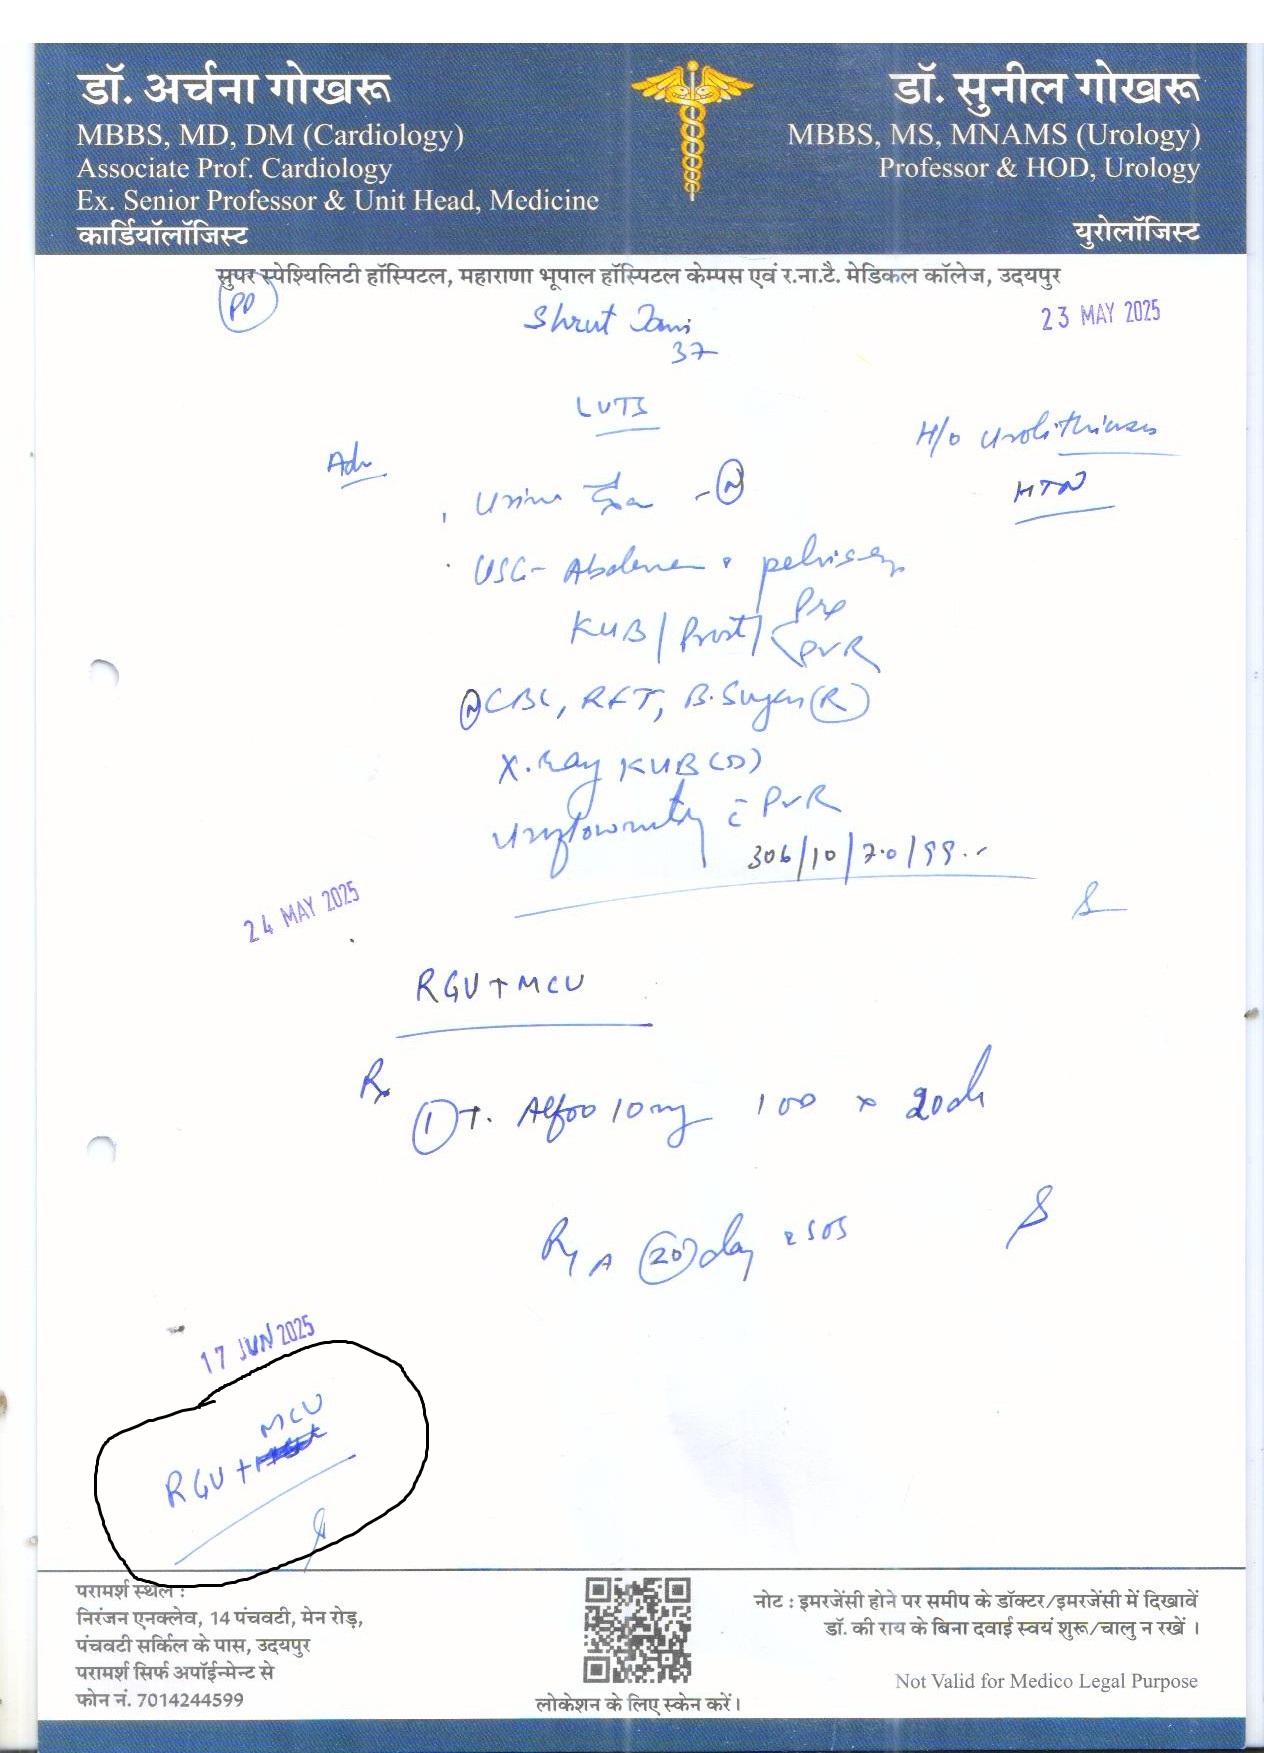 डॉ. अर्चना गोखरू
MBBS, MD, DM (Cardiology)
Associate Prof. Cardiology
Ex. Senior Professor & Unit Head, Medicine
कार्डियॉलॉजिस्ट
डॉ. सुनील गोखरू
MBBS, MS, MNAMS (Urology)
Professor & HOD, Urology
युरोलॉजिस्ट
सुपर स्पेश्यिलिटी हॉस्पिटल, महाराणा भूपाल हॉस्पिटल केम्पस एवं र.ना.टै. मेडिकल कॉलेज, उदयपुर
PP
Shrut Jani
37
23 MAY 2025
LUTS
H/o Urolithiasis
HTN
Adv
Urine - N
USG- Abdomen pelvis
KUB / Prost / Pre
PVR
N CBC, RFT, B. Sugar (R)
X.Ray KUB (D)
Uroflowmetry c̄ PVR
306/10/7.0/99
24 MAY 2025
RGU + MCU
Rx
① T. Alfoo 10mg 100 x 20d
R/A 20 day SOS
17 JUN 2025
MCU
RGU +
परामर्श स्थल :
निरंजन एनक्लेव, 14 पंचवटी, मेन रोड़,
पंचवटी सर्किल के पास, उदयपुर
परामर्श सिर्फ अपॉईन्मेन्ट से
फोन नं. 7014244599
लोकेशन के लिए स्केन करें।
नोट : इमरजेंसी होने पर समीप के डॉक्टर/इमरजेंसी में दिखावें
डॉ. की राय के बिना दवाई स्वयं शुरू/चालु न रखें ।
Not Valid for Medico Legal Purpose